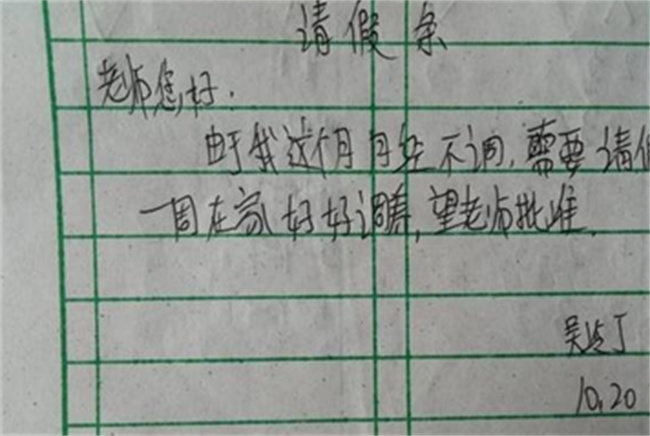 请假条
老师您好.
由于我这个月月经不调,需要请假
一周在家好好调养,望老师批准.
吴
10.20